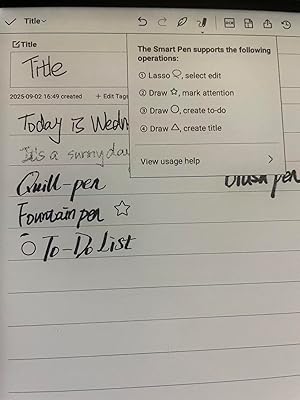 Title
Title
Title
The Smart Pen supports the following operations:
① Lasso, select edit
② Draw ☆, mark attention
③ Draw ○, create to-do
④ Draw △, create title
View usage help
2025-09-02 16:49 created + Edit Tags
Today is Wedn
It's a sunny day
Quill-pen
Brush pen
Fountain pen ☆
○ To-Do List